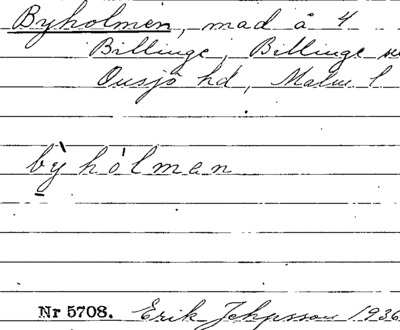 Byholmen, mad å 4
Billinge, Billinge
Onsjö hd, Malm. l
bỳhólman
Nr 5708. Erik 1936